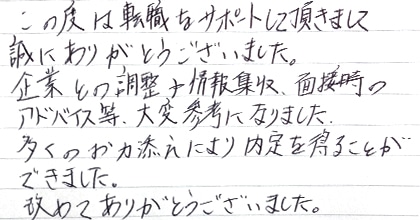 この度は転職をサポートして頂きまして
誠にありがとうございました。
企業との調整や情報集収、面接時の
アドバイス等、大変参考になりました。
多くのお力添えにより内定を得ることが
できました。
改めてありがとうございました。